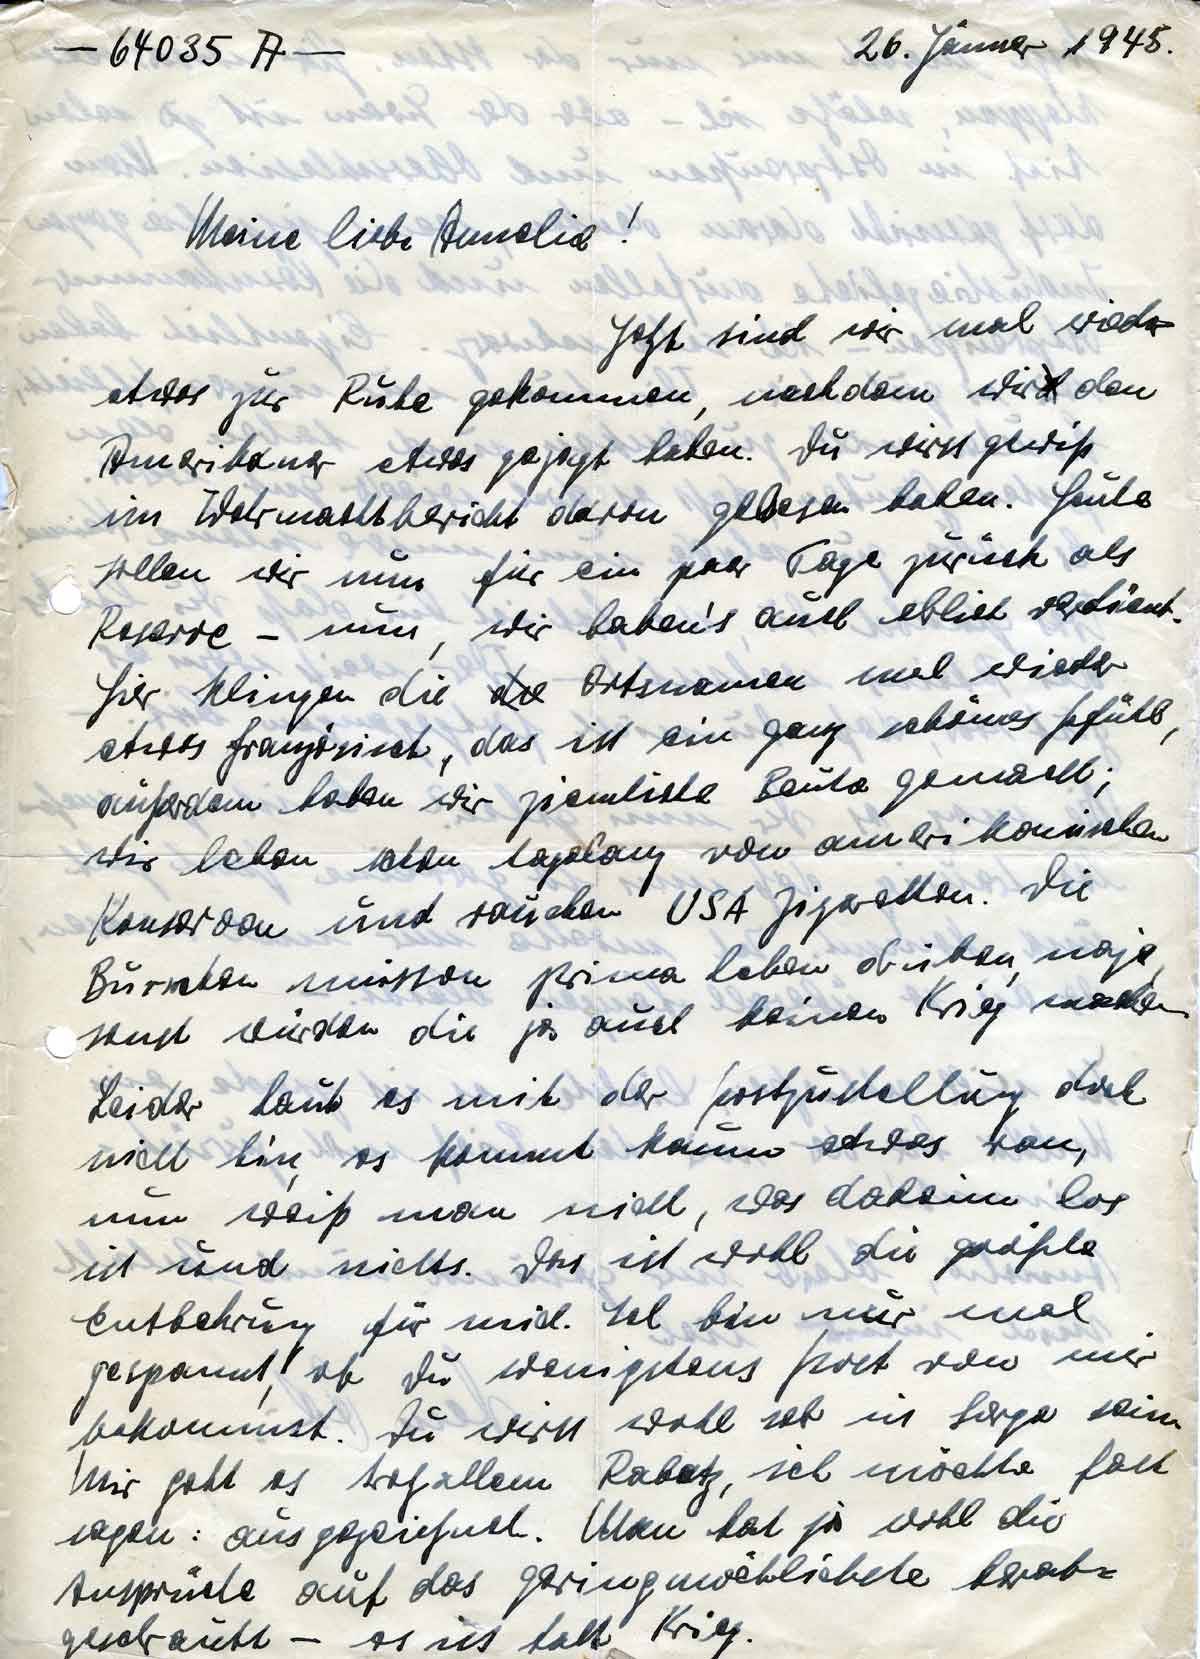 — 64035 A —
26. Jänner 1945.
Meine liebe Annelie!
Jetzt sind wir mal wieder
etwas zur Ruhe gekommen, nachdem wir den
Amerikaner etwas gejagt haben. Du wirst gewiß
im Wehrmachtbericht davon gelesen haben. Heute
sollen wir nun für ein paar Tage zurück als
Reserve – nun, wir haben's auch ehrlich verdient.
Hier klingen die die Ortsnamen mal wieder
etwas französisch, das ist ein ganz schönes Gefühl,
außerdem haben wir ziemliche Beute gemacht;
wir leben schon tagelang von amerikanischen
Konserven und rauchen USA Zigaretten. Die
Burschen müssen prima leben drüben, naja,
sonst würden die ja auch keinen Krieg machen.
Leider haut es mit der Postzustellung doch
nicht hin, es kommt kaum etwas ran,
nun weiß man nicht, was daheim los
ist und nichts. Das ist wohl die größte
Entbehrung für mich. Ich bin nur mal
gespannt, ob Du wenigstens Post von mir
bekommst. Du wirst wohl sehr in Sorge sein.
Mir geht es trotz allem Rabatz, ich möchte fast
sagen: ausgezeichnet. Man hat ja wohl die
Ansprüche auf das geringmöchlichste herab=
geschraubt – es ist halt Krieg.